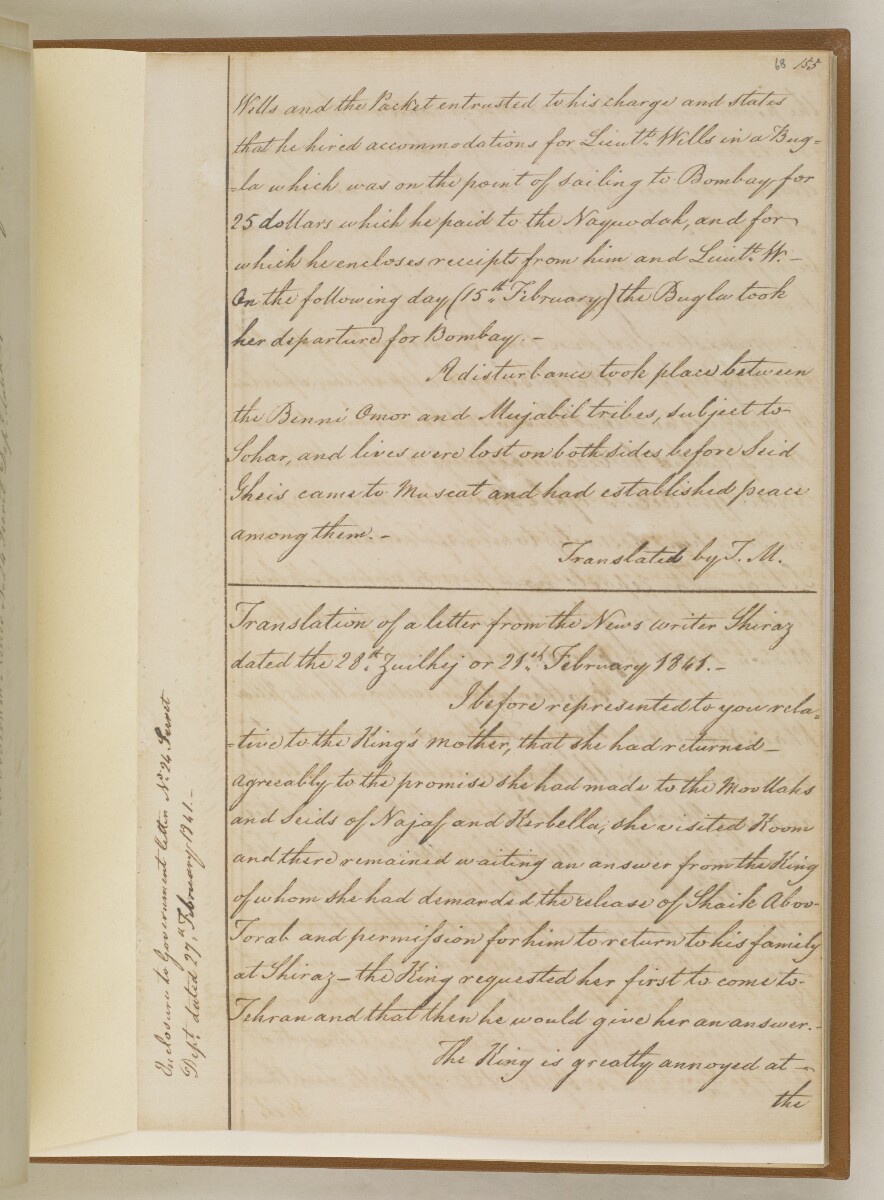 68 155
Wills and the Packet entrusted to his charge and states
that he hired accommodations for Lieutt. Wills in a Bug=
=la which was on the point of sailing to Bombay, for
25 dollars which he paid to the Naquodah, and for
which he encloses receipts from him and Lieutt. W.-
On the following day (15th February) the Bugla took
her departure for Bombay.-
A disturbance took place between
the Benni Omor and Mujabil tribes, subject to
Sohar, and lives were lost on both sides before Seid
Gheis came to Muscat and had established peace
among them.-
Translated by T. M.
Translation of a letter from the News writer Shiraz
dated the 28th Zuilhij or 21st February 1841.-
I before represented to you rela=
=tive to the King's mother, that she had returned-
agreeably to the promise she had made to the Moollahs
and Seids of Najaf and Kerbella; she visited Koom
and there remained waiting an answer from the King
of whom she had demanded the release of Shaik Aboo-
Torab and permission for him to return to his family
at Shiraz - the King requested her first to come to
Tehran and that then he would give her an answer.-
The King is greatly annoyed at -
the
Enclosure to Government letter No. 24 Secret
Dept. dated 27th February 1841.-